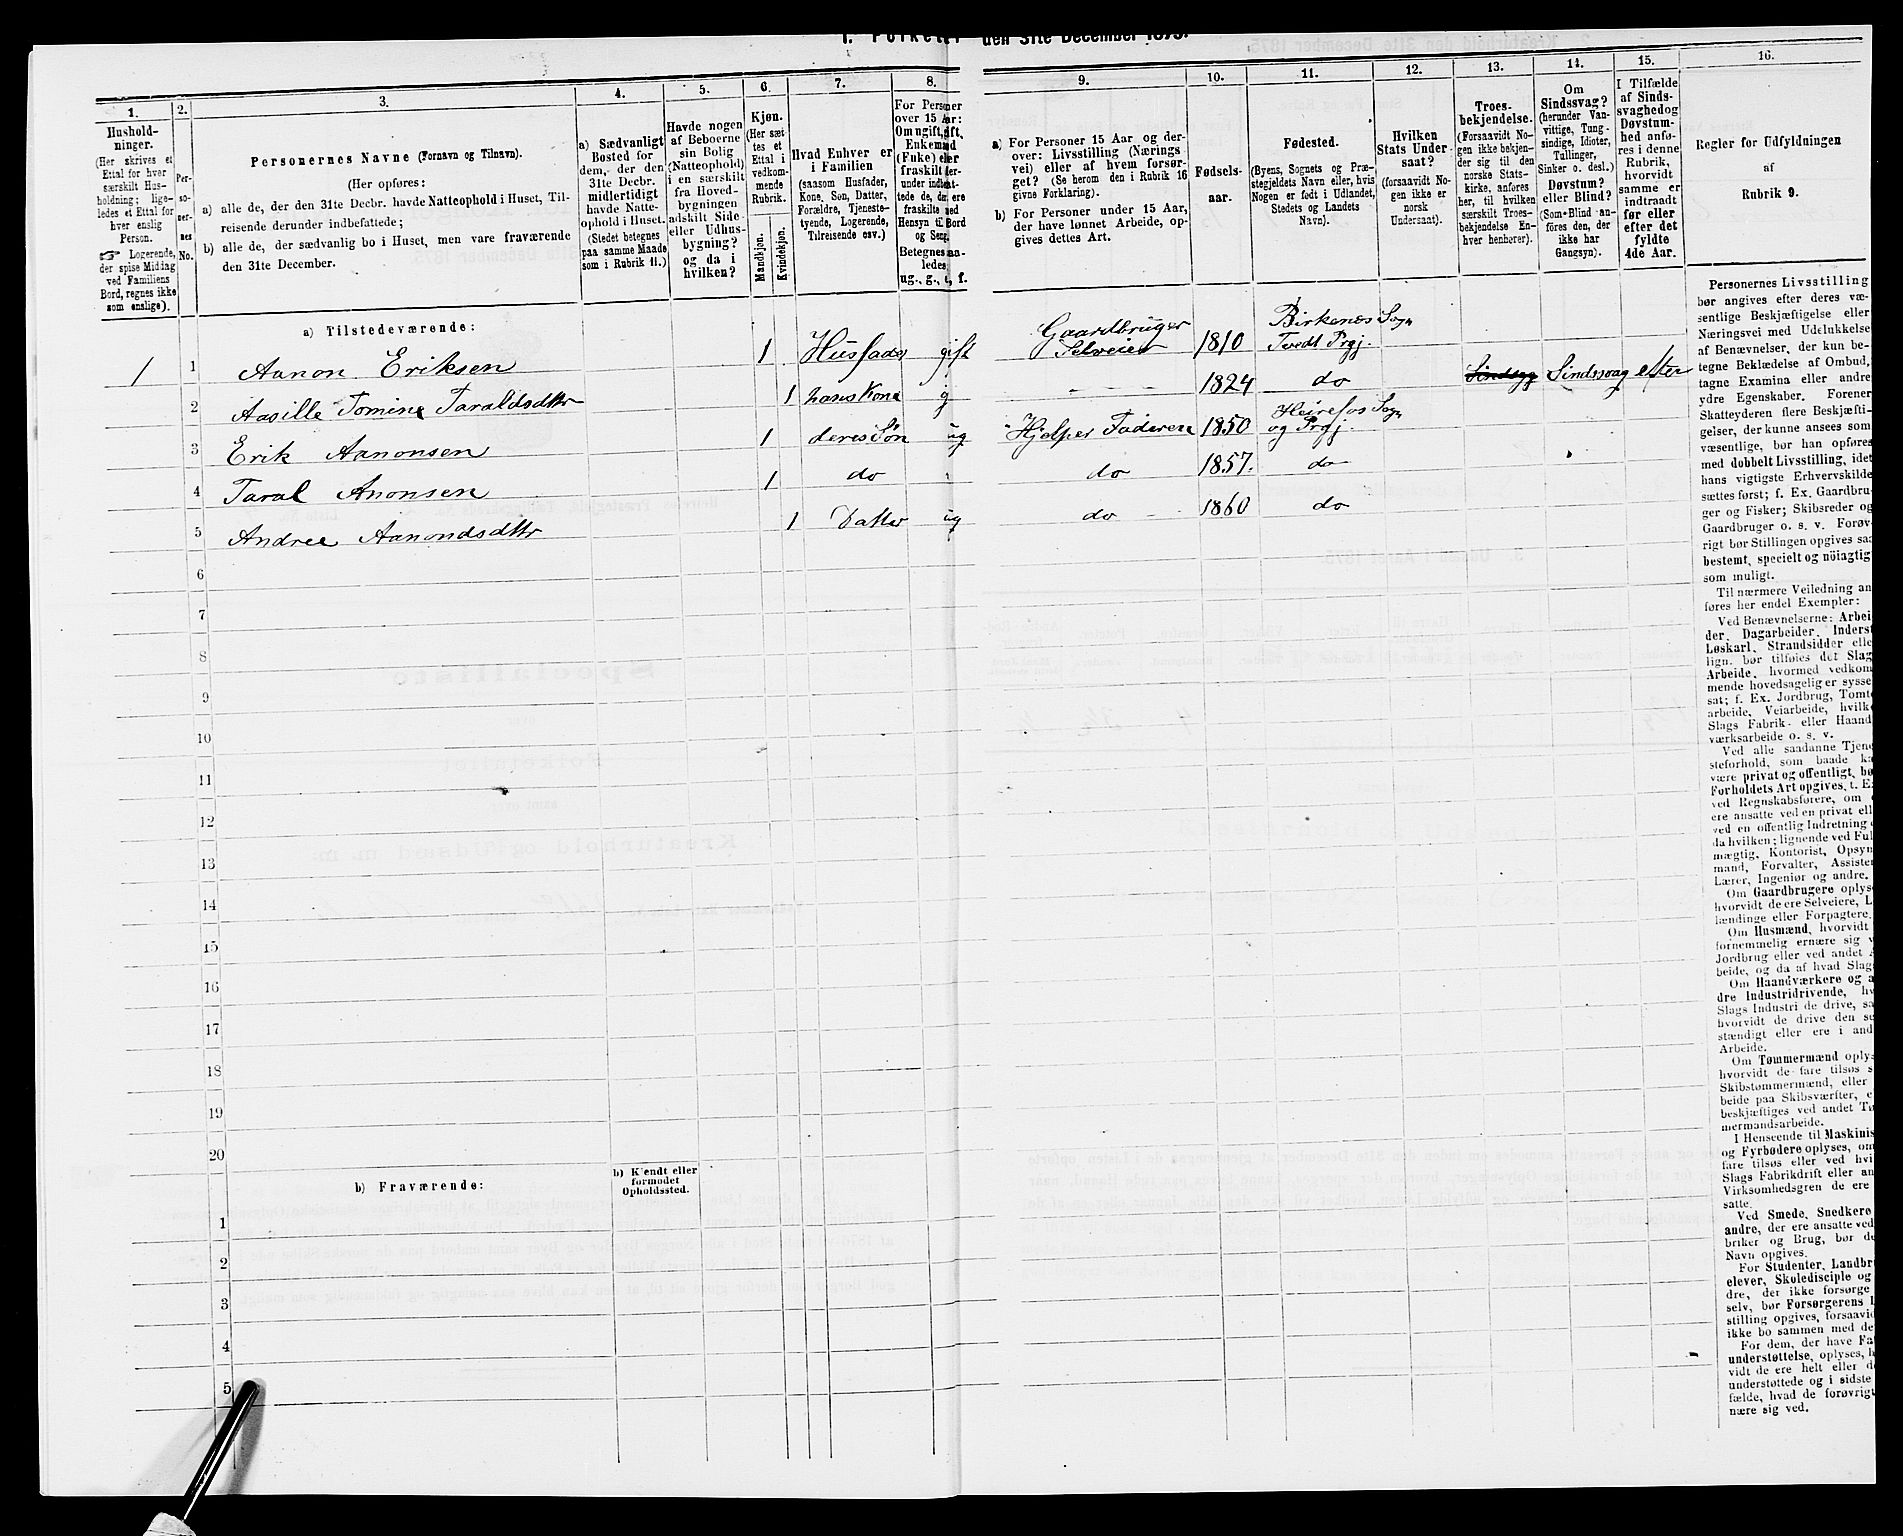 I. Folketal den 31te December 1875.
1.
Hushold-
ninger.
(Her skrives et
Ettal for hver
særskilt Hus-
holdning; lige-
ledes et Ettal for
hver enslig
Person.
Logerende,
der spise Middag
ved Familiens
Bord, regnes ikke
som enslige).
2.
Per-
so-
ner-
nes
No.
3.
Personernes Navne (Fornavn og Tilnavn).
(Her opføres:
a) alle de, der den 31te Decbr. havde Natteophold i Huset, Til-
reisende derunder indbefattede;
b) alle de, der sædvanlig bo i Huset, men vare fraværende
den 31te December.
4.
a) Sædvanligt
Bosted for
dem, der den
31te Decbr.
midlertidigt
havde Natte-
ophold i Huset.
(Stedet betegnes
paa samme Maade
som i Rubrik 11.)
5.
Havde nogen
af Beboerne
sin Bolig
(Natteophold)
i en særskilt
fra Hoved-
bygningen
adskilt Side-
eller Udhus-
bygning?
og da i
hvilken?
6.
Kjøn.
(Her sæt-
tes et
Ettal i
vedkom-
mende
Rubrik.
Mandkjøn.
Kvindekjøn.
7.
Hvad Enhver er
i Familien
(saasom Husfader,
Kone, Søn, Datter,
Forældre, Tjeneste-
tyende, Logerende,
Tilreisende osv.)
8.
For Personer
over 15 Aar:
Om ugift, gift,
Enkemand
(Enke) eller
fraskilt
Betegnes saa-
ledes:
ug., g., e, f.
9.
a) For Personer 15 Aar og der-
over: Livsstilling (Nærings
vei) eller af hvem forsør-
get? (Se herom den i Rubrik 16
givne Forklaring).
b) For Personer under 15 Aar,
der have lønnet Arbeide, op-
gives dettes Art.
10.
Fødsels-
aar.
11.
Fødested.
(Byens, Sognets og Præ-
stegjeldets Navn eller, hvis
Nogen er født i Udlandet,
Stedets og Landets
Navn).
12.
Hvilken
Stats Under-
saat?
(forsaavidt No-
gen ikke er
norsk
Undersaat).
13.
Troes-
bekjendelse.
(Forsaavidt No-
gen ikke bekjen-
der sig til den
norske Stats-
kirke, anføres
her, til hvilken
særskilt Troes-
bekjendelse En-
hver henhører).
14.
Om
Sindssvag?
(herunder Van-
vittige, Tung-
sindige, Idioter,
Tullinger,
Sinker o. desl.)
Døvstum?
eller Blind?
(Som Blind an-
føres den, der
ikke har
Gangsyn).
15.
I Tilfælde
af Sinds-
svaghed og
Døvstum-
hed anfø-
res i denne
Rubrik,
hvorvidt
samme er
indtraadt
før eller
efter det
fyldte
4de Aar.
16.
Regler for Udfyldningen
af
Rubrik 9.
a) Tilstedeværende:
1 1 Aanon Eriksen 1 Husfader gift Gaardbruger Selveier 1810 Birkenæs Sogn Tvedt Prgj.
2 Aasille Tomine Taraldsdtter 1 hans Kone g 1824 do Sindssvag efter
3 Erik Aanonsen 1 deres Søn ug Hjelper Faderen 1850 Heirefos Sogn og Prgj.
4 Taral Anonsen 1 do " do 1857. do
5 Andrea Aanondsdtter 1 Datter ug do 1860 do
6
7
8
9
10
11
12
13
14
15
16
17
18
19
20
b) Fraværende:
b) Kjendt eller
formodet
Opholdssted.
1
2
3
4
5
Personernes Livsstilling
bør angives efter deres væ-
sentlige Beskjæftigelse eller
Næringsvei med Udelukkelse
af Benævnelser, der kun be-
tegne Beklædelse af Ombud,
tagne Examina eller andre
ydre Egenskaber. Forener
Skatteyderen flere Beskjæfti-
gelser, der kunne ansees som
væsentlige, bør han opføres
med dobbelt Livsstilling, idet
hans vigtigste Erhvervskilde
sættes først; f. Ex. Gaardbru-
ger og Fisker; Skibsreder og
Gaardbruger o. s. v. Forøv-
rigt bør Stillingen opgives saa
bestemt, specielt og nöiagtig
som muligt.
Til nærmere Veiledning an-
føres her endel Exempler:
Ved Benævnelserne: Arbei-
der, Dagarbeider, Inderst
Løskarl, Strandsidder elle
lign. bør tilføies det Slag
Arbeide, hvormed vedkom
mende hovedsagelig er sysse
sat; f. Ex. Jordbrug, Tomte
arbeide, Veiarbeide, hvilke
Slags Fabrik- eller Haand
værksarbeide o. s. v.
Ved alle saadanne Tjene
steforhold, som baade ka
være privat og offentligt, bø
Forholdets Art opgives, t. E
ved Regnskabsførere, om
ere ansatte ved en privat ell
ved en offentlig Indretning
da hvilken; lignende ved Ful
mægtig, Kontorist, Opsyn
mand, Forvalter, Assisten
Lærer, Ingeniør og andre.
Om Gaardbrugere oplyse
hvorvidt de ere Selveiere, L
lændinge eller Forpagtere.
Om Husmænd, hvorvidt
fornemmelig ernære sig v
Jordbrug eller ved andet A
beide, og da af hvad Slag
Om Haandværkere og a
dre Industridrivende, hv
Slags Industri de drive, sa
hvorvidt de drive den se
stændigt eller ere i and
Arbeide.
Om Tømmermænd oplys
hvorvidt de fare tilsøs s
Skibstømmermænd, eller
beide paa Skibsværfter, e
beskjæftiges ved andet Tø
mermandsarbeide.
I Henseende til Maskinis
og Fyrbødere oplyses, om
fare tilsøs eller ved hvi
Slags Fabrikdrift eller an
Virksomhedsgren de ere
satte.
Ved Smede, Snedkere o
andre, der ere ansatte ved
briker og Brug, bør de
Navn opgives.
For Studenter, Landbr
elever, Skoledisciple og
dre, der ikke forsørge
selv, bør Forsørgerens L
stilling opgives, forsaavid
ikke bo sammen med de
For dem, der have Fa
understøttelse, oplyses, h
vidt de ere helt eller de
understøttede og i sidste
fælde, hvad de forøvrigt
nære sig ved.